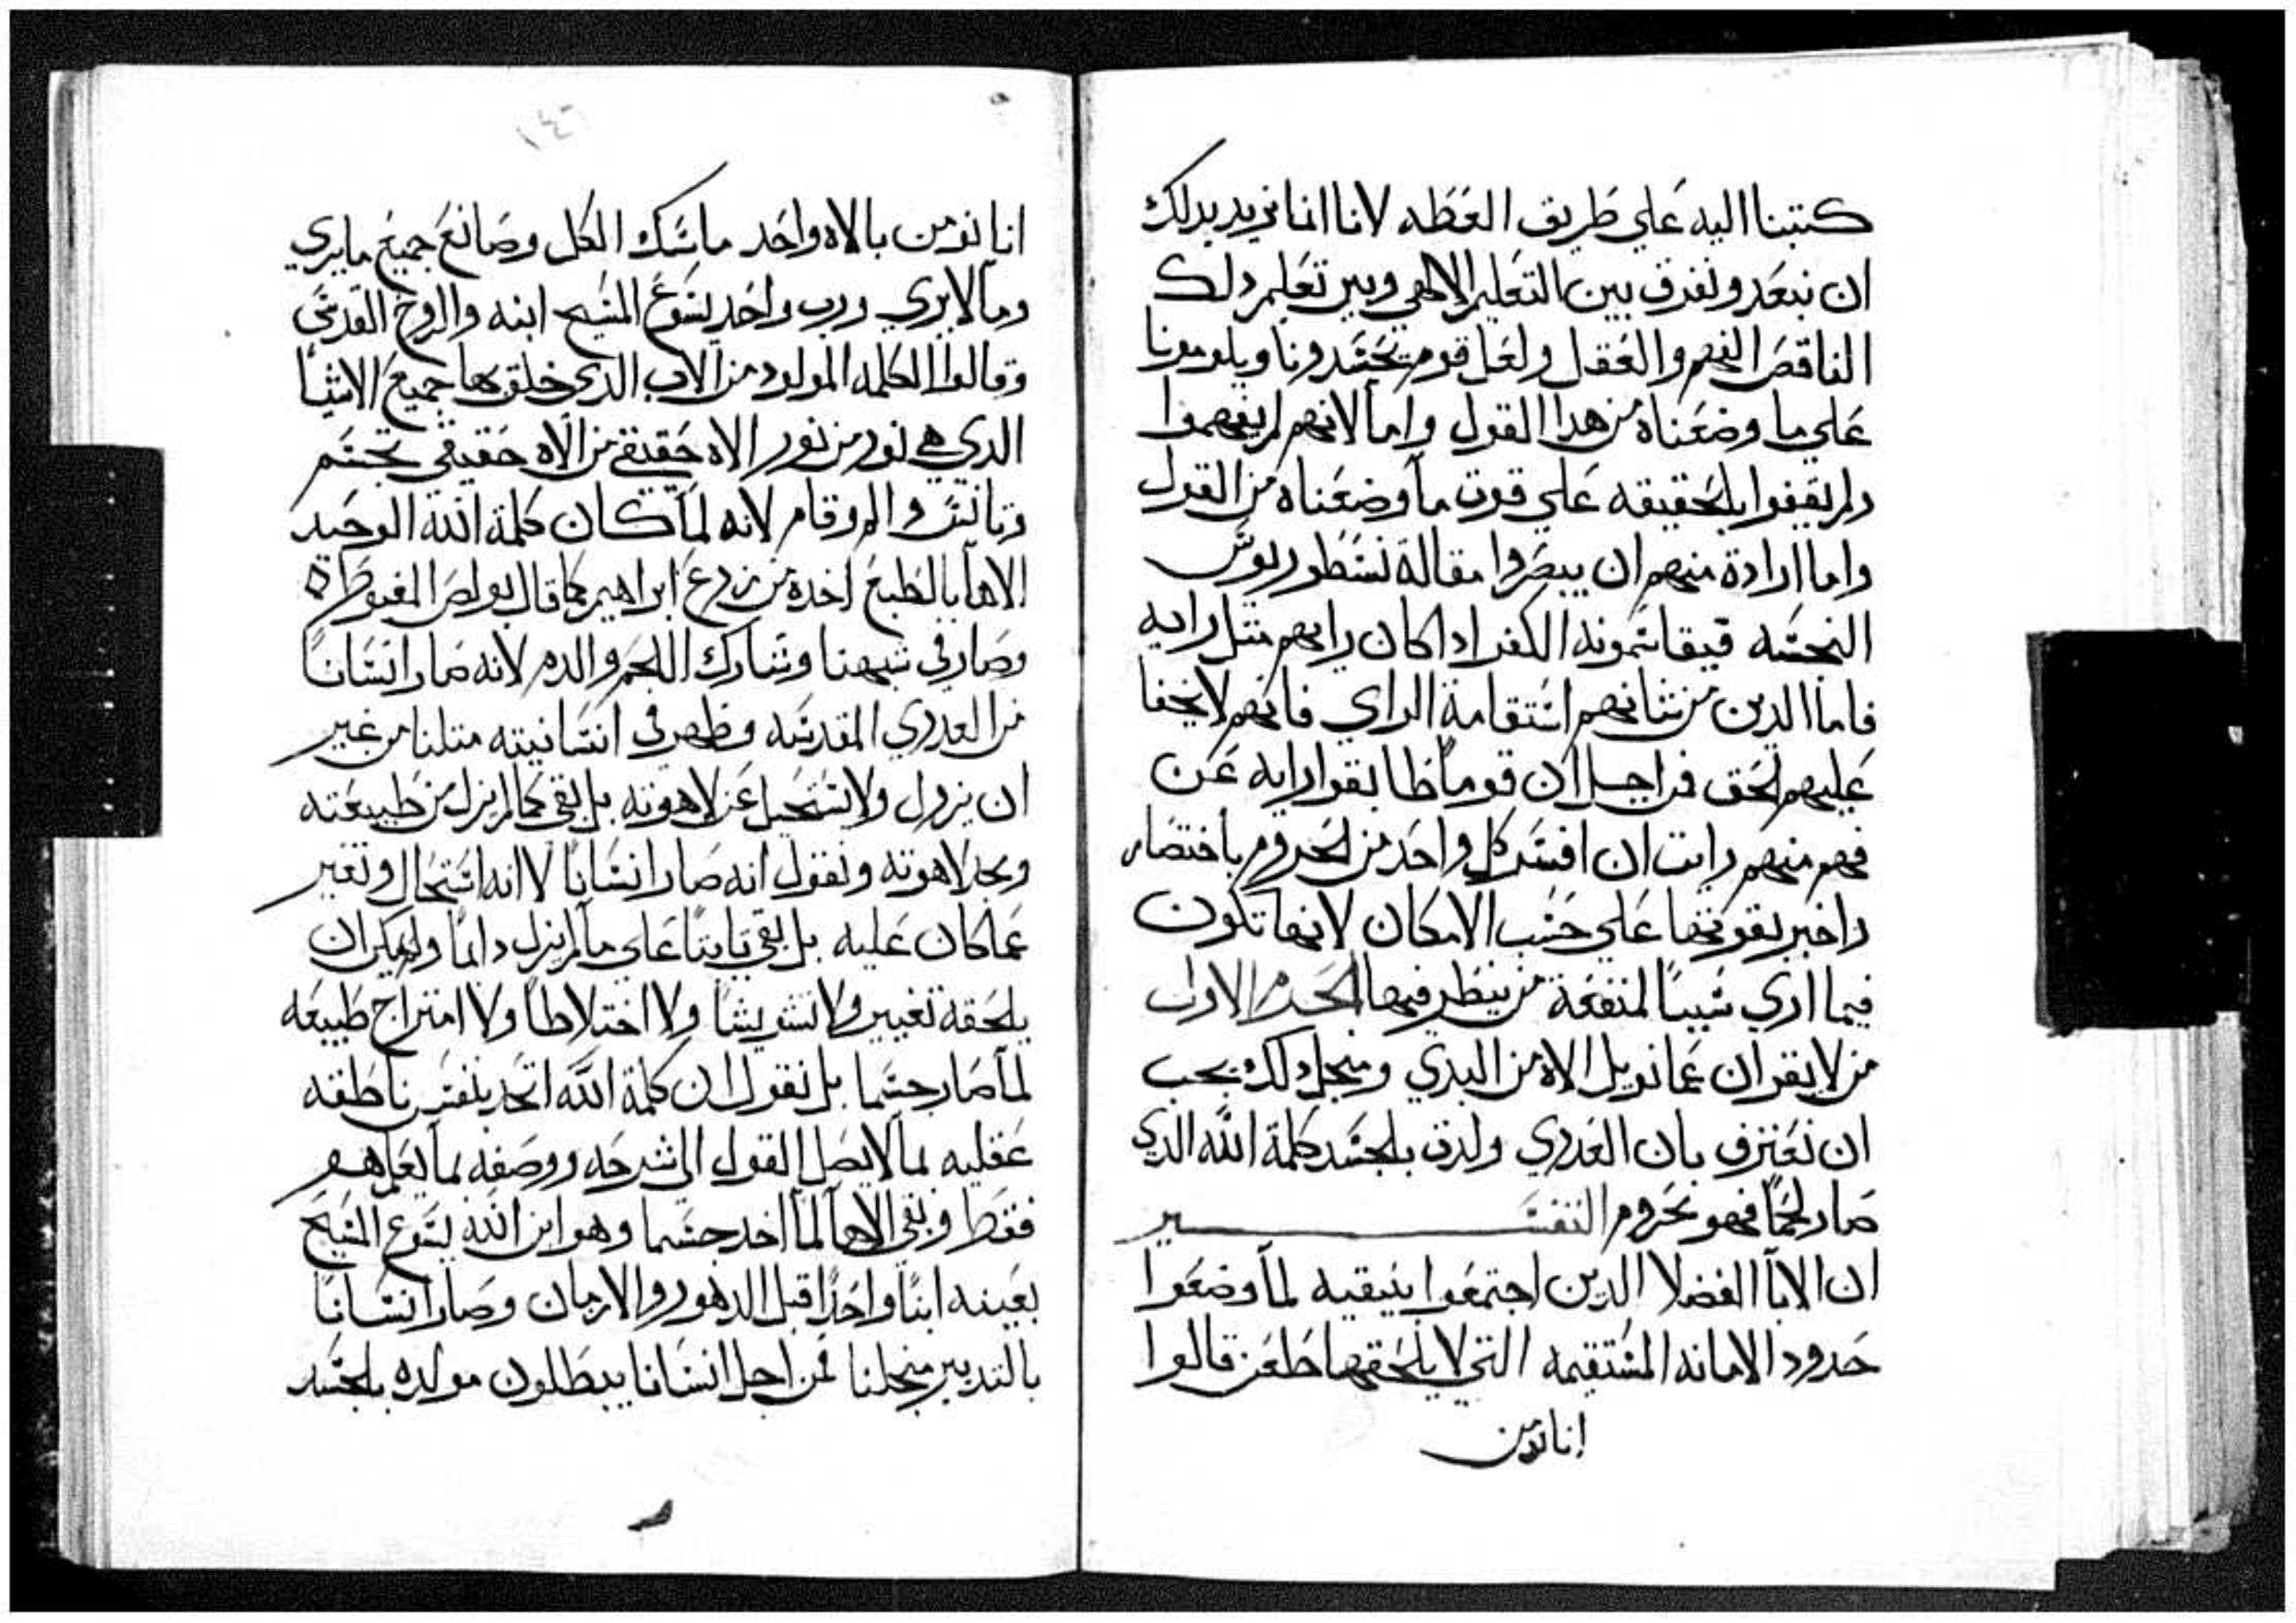 كتبنا اليه علي طريق العظه لانا انما نريد بدلك
ان نبعد ونفرق بين التعليم الالاهي وبين تعليم دلك
الناقص الفهم والعقل ولعل قوم يحسدونا ويلومونا
علي ما وضعناه من هدا القول واما لانهم لم يفهموا
ولم يقفوا بالحقيقه علي قوت ما وضعناه من القول
واما ارادة منهم ان ينصروا مقالة نسطوريوس
النجسه الكفر ادا كان رايهم متل رايه
فاما الدين من شانهم استقامة الراي فانهم لا يخفا
عليهم الحق فمن اجل ان قوما ظابقوا رايه عن
فهم منهم رايت ان افسر كل واحد من الحروم باختصار
واخبر بقوتها علي حسب الامكان لانها تكون
فيما اري سببا لمنفعة من ينظر فيها الحرم الاول
من لا يقر ان عمانويل الاه من البدي ومنجل دلك يجب
ان نعترف بان العدري ولدت بالجسد كلمة الله الدي
صار لحما فهو محروم التفسير
ان الابا الفضلا الدين اجتمعوا بنيقيه لما وضعوا
حدود الامانه المستقيمه التي لا يلحقها طعن قالوا
انا نومن
١٤٦
انا نومن بالاه واحد ماسك الكل وصانع جميع ما يري
وما لا يري ورب واحد يسوع المسيح ابنه والروح القدس
وقالوا الكلمه المولود من الاب الدي خلق بها جميع الاشيا
الدي هي نور من نور الاه حقيقي من الاه حقيقي تجسم
وتانس والم وقام لانه لما كان كلمة الله الوحيد
الاها بالطبع اخده من زرع ابراهيم كما قال بولص المغبوط
وصار في شبهنا وشارك اللحم والدم لانه صار انسانا
من العدري المقدسه وظهر في انسانيته متلنا من غير
ان يزول ولا يستحيل عن لاهوته بل بقي كما لم يزل من طبيعته
ومجد لاهوته ونقول انه صار انسانا لا انه استحال وتغير
عما كان عليه بل بقي تابتا علي ما لم يزل دايما ولم يمكن ان
يلحقه تغيير ولا تشويشا ولا اختلاطا ولا امتزاج طبيعه
لما صار جسما بل نقول ان كلمة الله اتحد بنفس ناطقه
عقليه بما لا يصل القول الي شرحه ووصفه بما يعلم هو
فقط وبقي الاها لما اخد جسما وهو ابن الله يسوع المسيح
بعينه ابنا واحدا قبل الدهور والازمان وصار انسانا
بالتدبير منجلنا فمن اجل انسانا يبطلون مولده بالجسد